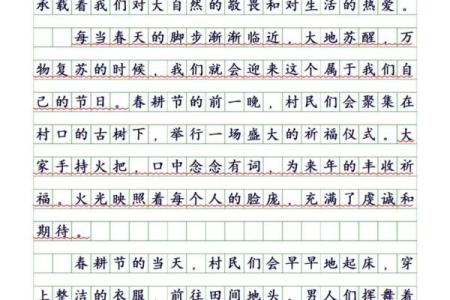 承载着我们对大自然的敬畏和对生活的热爱。
每当春天的脚步渐渐临近，大地苏醒，万
物复苏的时候，我们就会迎来这个属于我们自
己的节日。春耕节的前一晚，村民们会聚集在
村口的古树下，举行一场盛大的祈福仪式。大
家手持火把，口中念念有词，为来年的丰收祈
福。火光映照着每个人的脸庞，充满了虔诚和
期待。
春耕节的当天，村民们会早早地起床，穿
上整洁的衣服，前往田间地头。男人们挥舞着